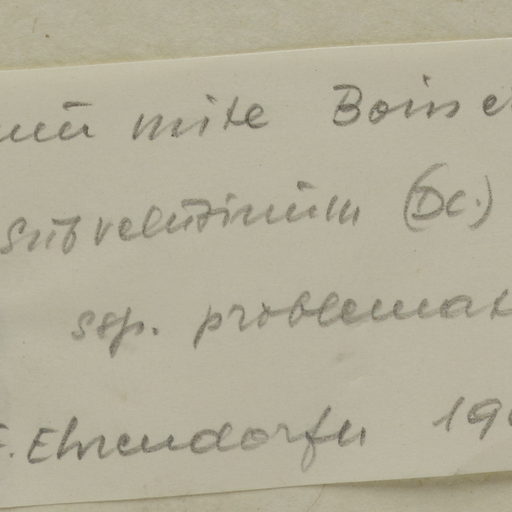 mite Boiss
subvelutinum (DC.)
ssp. problemat
F. Ehrendorfer 19